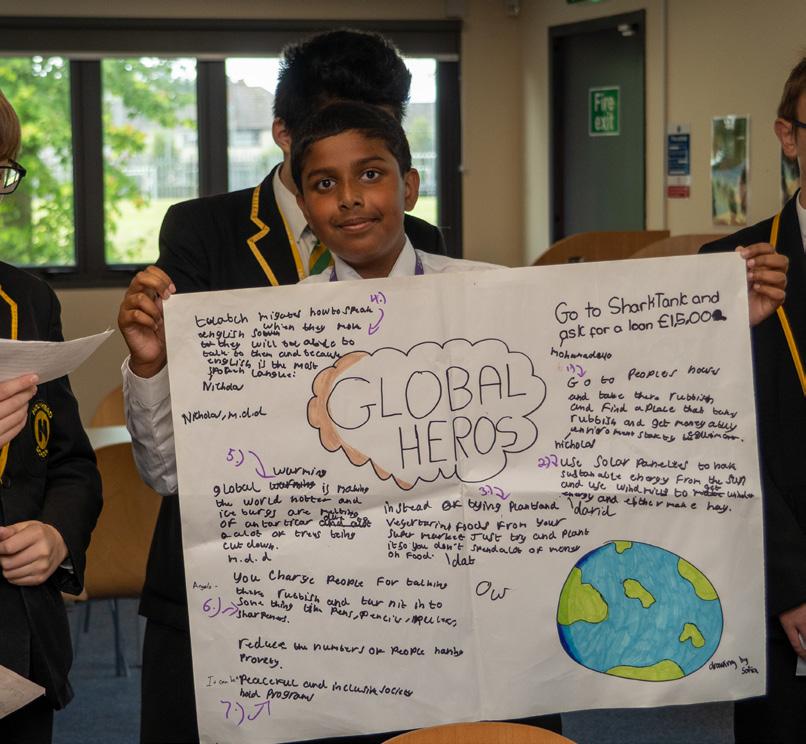 Fire
exit
GLOBAL
HEROS
4.)
migates how to speak
english when they move
so they will be able to
talk to them and because
english is the most
spoken
Nicholas
Nicholas, m.d.d
Go to SharkTank and
ask for a loan £15,000
1)
Go to peoples houses
and take there rubbish
and find a place that take
rubbish and get money
nicholas
2)
use Solar to
sustainable energy from the sun
and use wind mills to
energy and
david
3.)
instead of plant and
vegetarian foods from your
super market Just try and plant
it so you don't spend alot of money
on food.
5.)
warming
global is making
the world hotter and
ice burgs are
of antartica and
a alot of trees being
cut down.
m.d.d
Angelo
6.)
You Charge People For
there rubbish and turn it in to
some thing like Pens, Pencils,
sharpeners.
reduce the numbers of People
Proverty.
7.)
Peaceful and inclusive society
hold Programs
drawing by
sofia